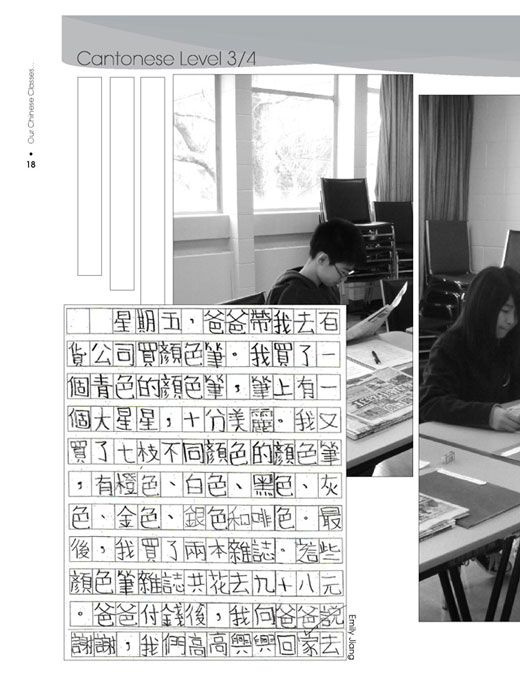 Cantonese Level 3/4
Our Chinese Classes...
18
星期五，爸爸帶我去百
貨公司買顏色筆。我買了一
個青色的顏色筆，筆上有一
個大星星，十分美麗。我又
買了七枝不同顏色的顏色筆
，有橙色、白色、黑色、灰
色、金色、銀色和啡色。最
後，我買了兩本雜誌。這些
顏色筆雜誌共花去九十八元
。爸爸付錢後，我向爸爸說
謝謝，我們高高興興回家去
Emily Jiang